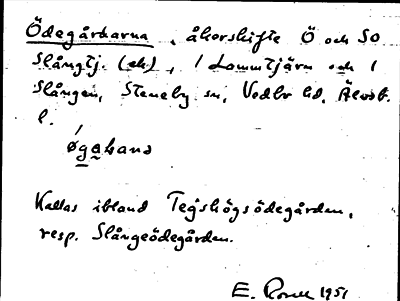 Ödegårdarna, åkerskifte Ö och SO
Slångtj. (ek.), / Lommtjärn och /
Slången, Steneby sn, Vedbo hd, Älvsb.
l.
øgaɧana
Kallas ibland Tegshögsödegården,
resp. Slångeödegården.
E. 1951